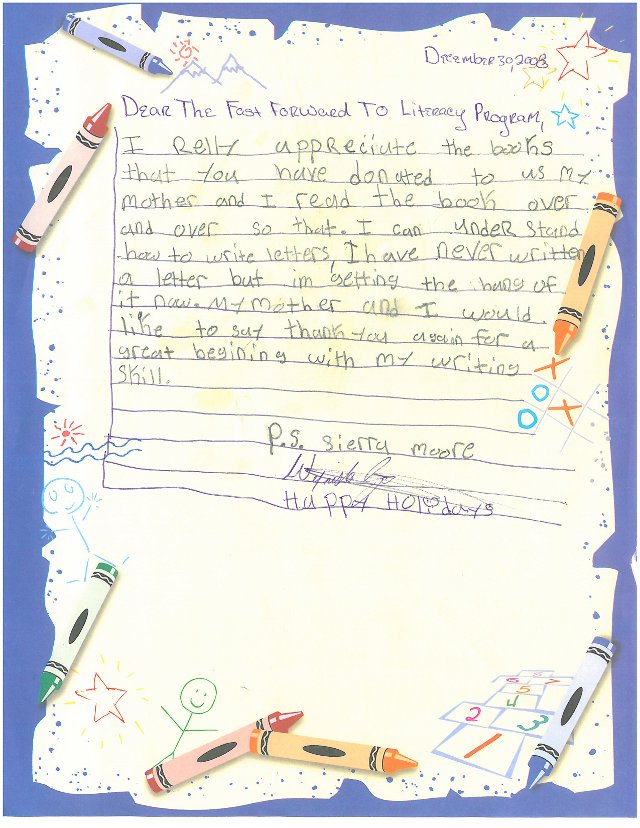 December 30, 2008
Dear The Fast Forward To Literacy Program,
I Relly appreciate the books
that you have donated to us my
mother and I read the book over
and over so that. I can under stand
how to write letters, I have never written
a letter but im getting the hang of
it now. My mother and I would
like to say thank you again for a
great begining with my writing
skill.
P.S. sierra moore
Happy Holidays
X
O
O X
6 7
5
4
2 3
1